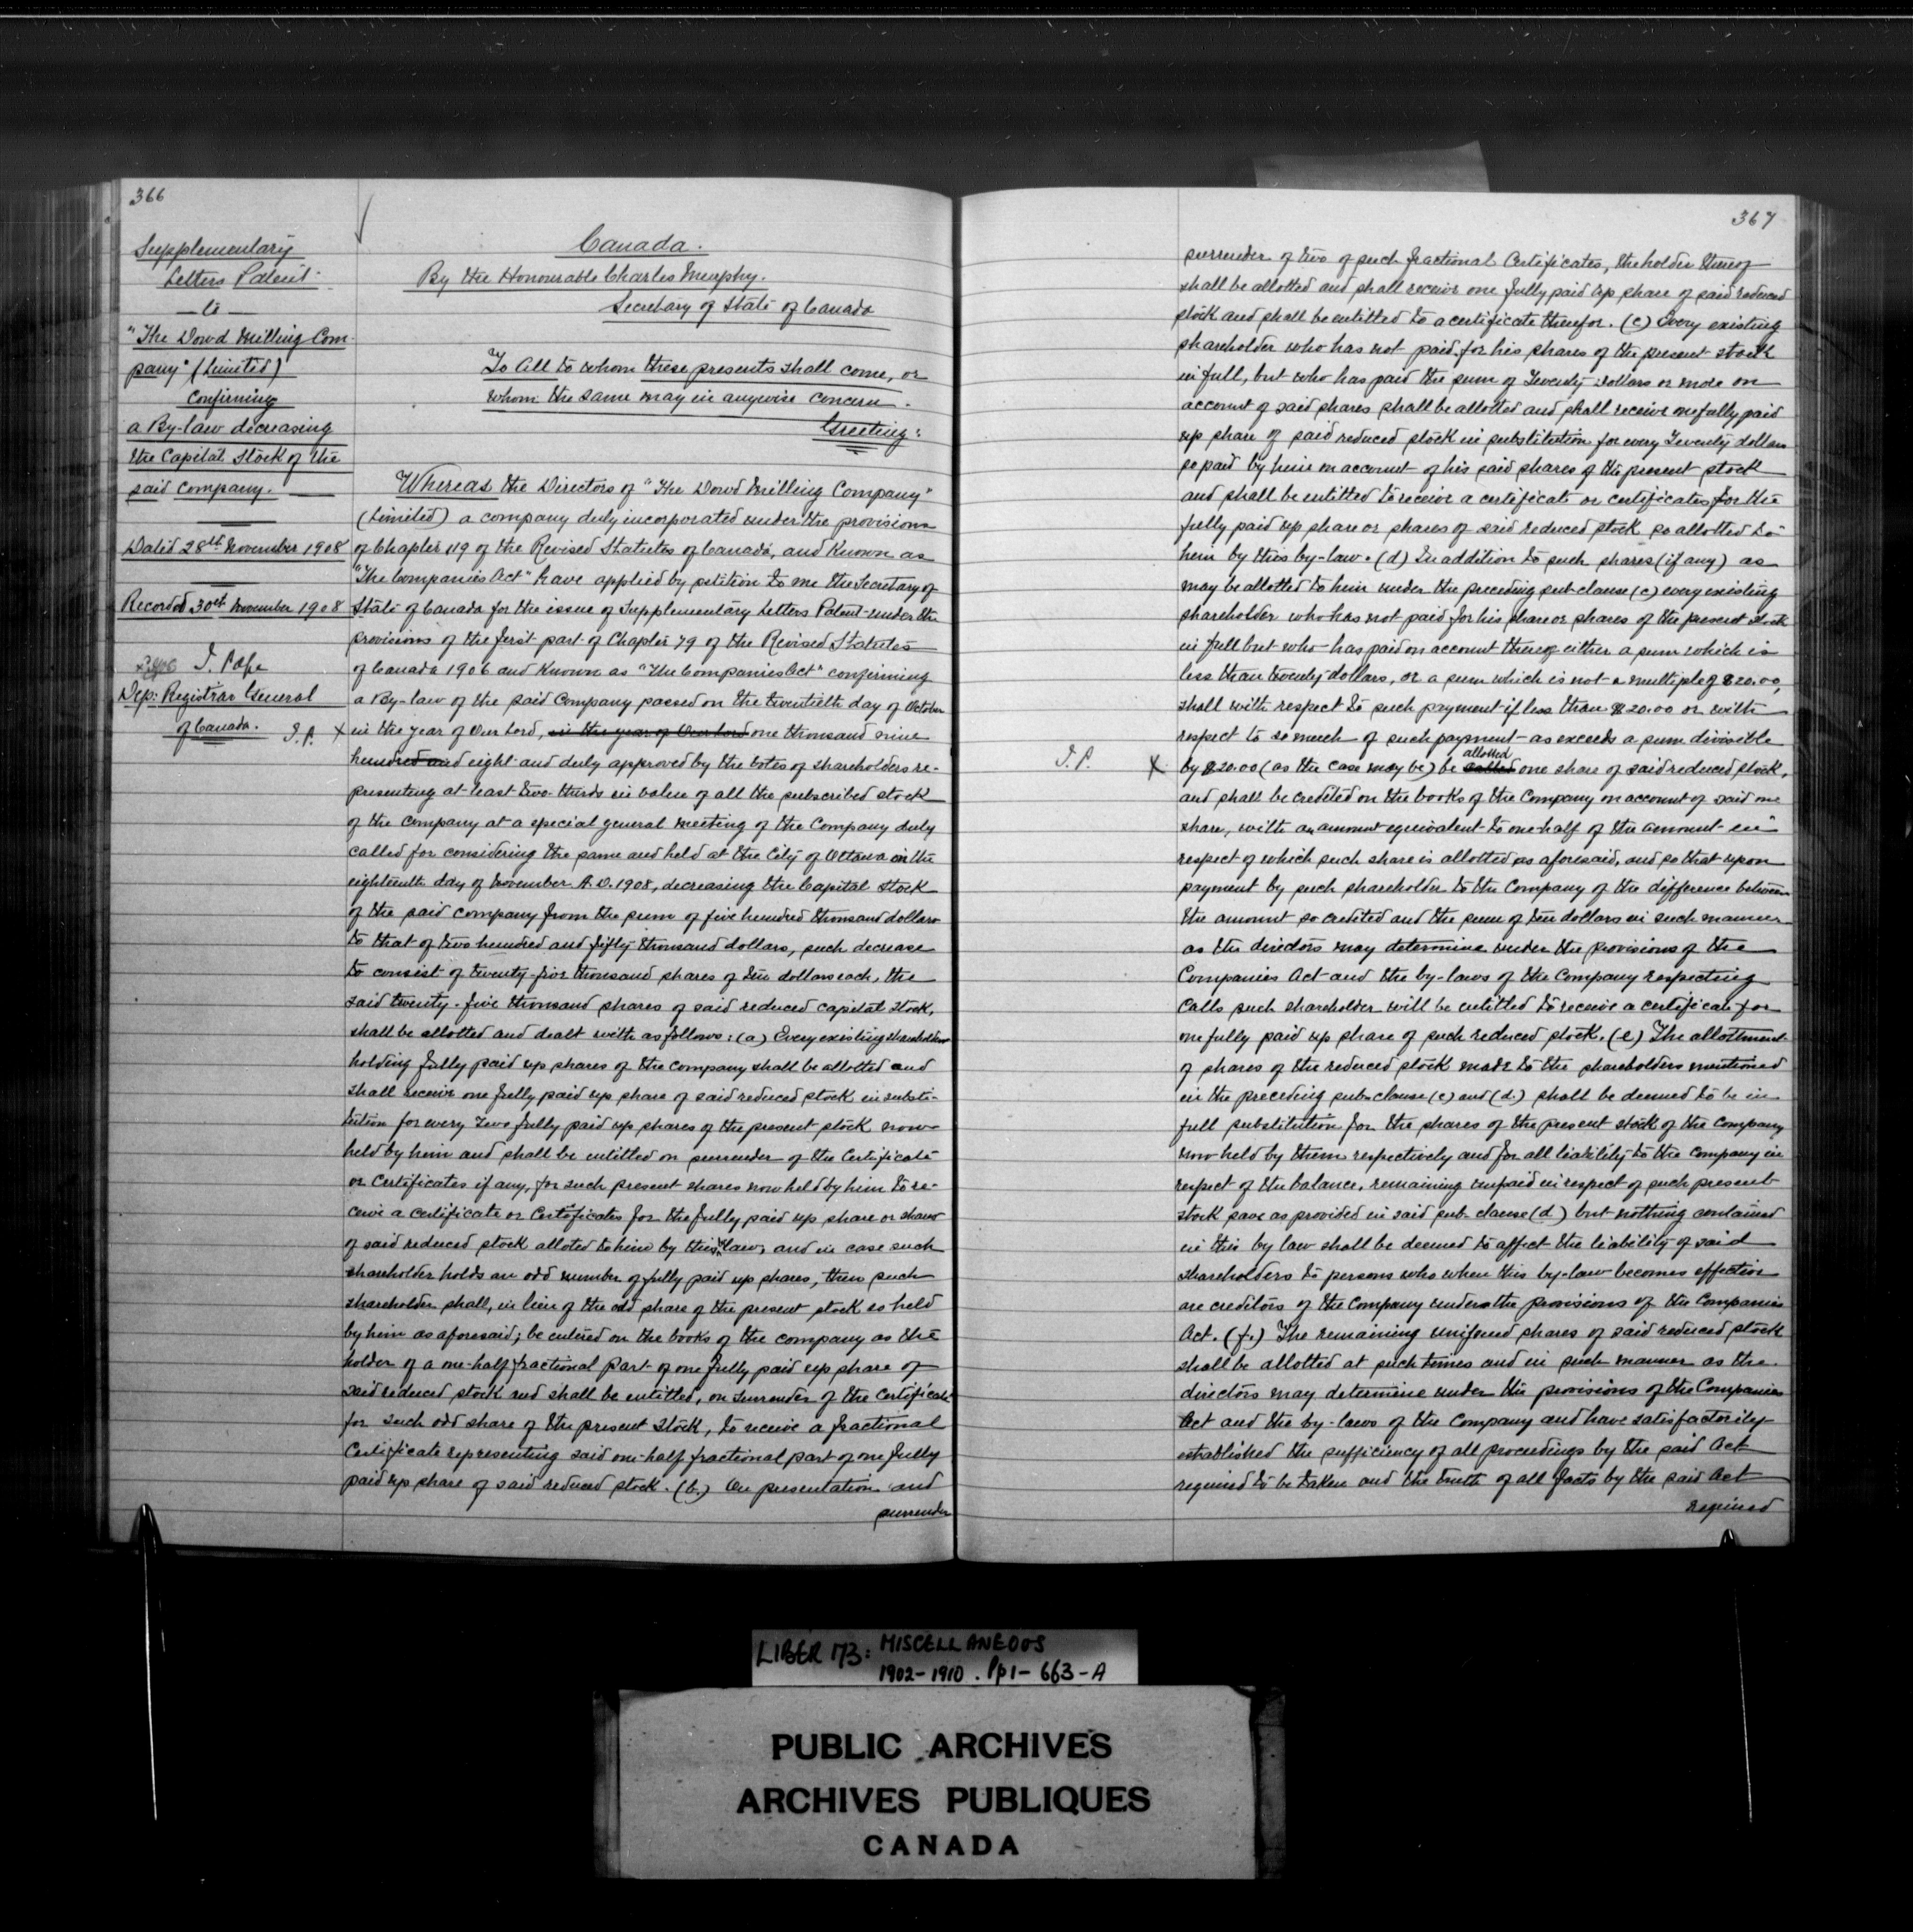 366
Supplementary
Letters Patent
— to —
"The Dowd Milling Com-
pany" (Limited)
Confirming
a By-law decreasing
the Capital Stock of the
said Company.
Dated 28th November 1908
Recorded 30th November 1908
J. Pope
Dep: Registrar General
of Canada.
J.P. X
Canada.
By the Honourable Charles Murphy.
Secretary of State of Canada
To All to whom these presents shall come, or
whom the same may in anywise concern.
Greeting:
Whereas the Directors of "The Dowd Milling Company"
(Limited) a company duly incorporated under the provisions
of Chapter 119 of the Revised Statutes of Canada, and Known as
"The Companies Act" have applied by petition to me the Secretary of
State of Canada for the issue of Supplementary Letters Patent under the
provisions of the first part of Chapter 79 of the Revised Statutes
of Canada 1906 and Known as "The Companies Act" confirming
a By-law of the said Company passed on the twentieth day of October
in the year of Our Lord, in the year of Our Lord one thousand nine
hundred and eight and duly approved by the votes of shareholders re-
presenting at least two-thirds in value of all the subscribed stock
of the Company at a special general meeting of the Company duly
called for considering the same and held at the City of Ottawa on the
eighteenth day of November A.D. 1908, decreasing the Capital Stock
of the said company from the sum of five hundred thousand dollars
to that of two hundred and fifty thousand dollars, such decrease
to consist of twenty-five thousand shares of ten dollars each, the
said twenty-five thousand shares of said reduced capital stock,
shall be allotted and dealt with as follows: (a) Every existing shareholder
holding fully paid up shares of the Company shall be allotted and
shall receive one fully paid up share of said reduced stock in substi-
tution for every Two fully paid up shares of the present stock now
held by him and shall be entitled on surrender of the Certificate
or Certificates if any, for such present shares now held by him to re-
ceive a certificate or Certificates for the fully paid up share or shares
of said reduced stock alloted to him by this by law, and in case such
shareholder holds an odd number of fully paid up shares, then such
shareholder shall, in lieu of the odd share of the present stock so held
by him as aforesaid; be entered on the books of the company as the
holder of a one-half fractional part of one fully paid up share of
said reduced stock and shall be entitled, on surrender of the Certificate
for such odd share of the present stock, to receive a fractional
Certificate representing said one-half fractional part of one fully
paid up share of said reduced stock. (b.) On presentation and
surrender
367
surrender of two of such fractional Certificates, the holder thereof
shall be allotted and shall receive one fully paid up share of said reduced
stock and shall be entitled to a certificate therefor. (c) Every existing
shareholder who has not paid for his shares of the present stock
in full, but who has paid the sum of Twenty dollars or more on
account of said shares shall be allotted and shall receive one fully paid
up share of said reduced stock in substitution for every Twenty dollars
so paid by him on account of his said shares of the present stock
and shall be entitled to receive a certificate or certificates for the
fully paid up share or shares of said reduced stock so allotted to
him by this by-law. (d) In addition to such shares (if any) as
may be allotted to him under the preceding sub-clause (c) every existing
shareholder who has not paid for his share or shares of the present stock
in full but who has paid on account thereof either a sum which is
less than twenty dollars, or a sum which is not a multiple of $20.00,
shall with respect to such payment if less than $20.00 or with
respect to so much of such payment as exceeds a sum divisible
J.P. X
allotted
by $20.00 (as the case may be) be called one share of said reduced stock,
and shall be credited on the books of the Company on account of said one
share, with an amount equivalent to one-half of the amount in
respect of which such share is allotted as aforesaid, and so that upon
payment by such shareholder to the Company of the difference between
the amount so credited and the sum of ten dollars in such manner
as the directors may determine under the provisions of the
Companies Act and the by-laws of the Company respecting
Calls such shareholder will be entitled to receive a certificate for
one fully paid up share of such reduced stock. (e) The allottment
of shares of the reduced stock made to the shareholders mentioned
in the preceding sub-clause (c) and (d.) shall be deemed to be in
full substitution for the shares of the present stock of the Company
now held by them respectively and for all liability to the Company in
respect of the balance, remaining unpaid in respect of such present
stock save as provided in said sub-clause (d) but nothing contained
in this by law shall be deemed to affect the liability of said
shareholders to persons who when this by-law becomes effective
are creditors of the Company under the provisions of the Companies
Act. (f.) The remaining unissued shares of said reduced stock
shall be allotted at such times and in such manner as the
directors may determine under the provisions of the Companies
Act and the by-laws of the Company and have satisfactorily
established the sufficiency of all proceedings by the said Act
required to be taken and the truth of all facts by the said Act
required
LIBER 173: MISCELLANEOUS
1902-1910. Pp 1-663-A
PUBLIC ARCHIVES
ARCHIVES PUBLIQUES
CANADA